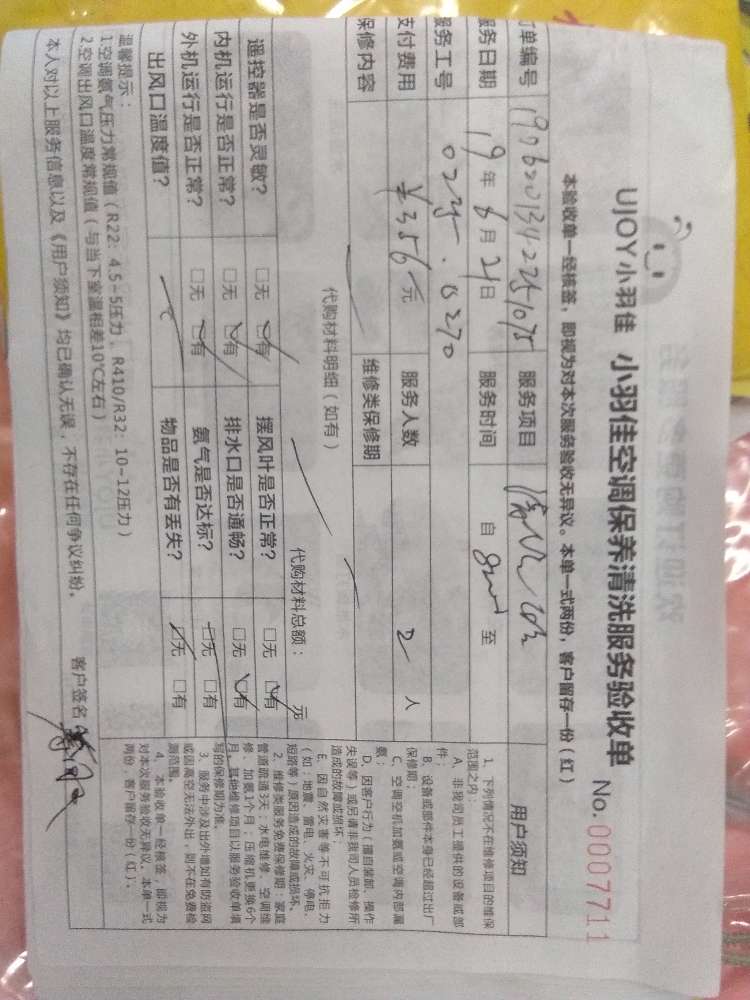 UJOY小羽佳 小羽佳空调保养清洗服务验收单
No.0007711
本验收单一经核签，即视为对本次服务验收无异议。本单一式两份，客户留存一份（红）
订单编号 服务项目
服务日期 19年6月21日 服务时间 自 至
服务工号 0225.0270
支付费用 ￥356元 服务人数 2人
保修内容 维修类保修期
代购材料明细（如有） 代购材料总额： 元
遥控器是否灵敏？ □无 □有 摆风叶是否正常？ □无 □有
内机运行是否正常？ □无 □有 排水口是否通畅？ □无 □有
外机运行是否正常？ □无 □有 氨气是否达标？ □无 □有
出风口温度值？ ℃ 物品是否有丢失？ □无 □有
温馨提示：
1空调氨气压力常规值（R22：4.5-5压力，R410/R32：10-12压力）
2.空调出风口温度常规值（与当下室温相差10℃左右）
本人对以上服务信息以及《用户须知》均已确认无误，不存在任何争议纠纷。
客户签名
用户须知
1、下列情况不在维修项目的维保
范围之内：
A、非我司员工提供的设备或部
件；
B、设备或部件本身已经超过出厂
保修期；
C、空调空机加氨或空调内部漏
氨；
D、因客户行为（擅自装卸、操作
失误等）或另请非我司人员检修所
造成的故障或损坏；
E、因自然灾害等不可抗拒力
（如：地震、雷电、火灾、停电、
短路等）原因造成的故障或损坏。
2、维修类服务免费保修期：家庭
管道疏通3天；水电维修、空调维
修、加氨1个月；压缩机更换6个
月。其他维修项目以服务验收单填
写的保修期为准。
3、服务中涉及出外墙如有防盗网
或因高空无法外出，则不在免费检
测范围。
4、本验收单一经核签，即视为
对本次服务验收无异议。本单一式
两份，客户留存一份（红）。